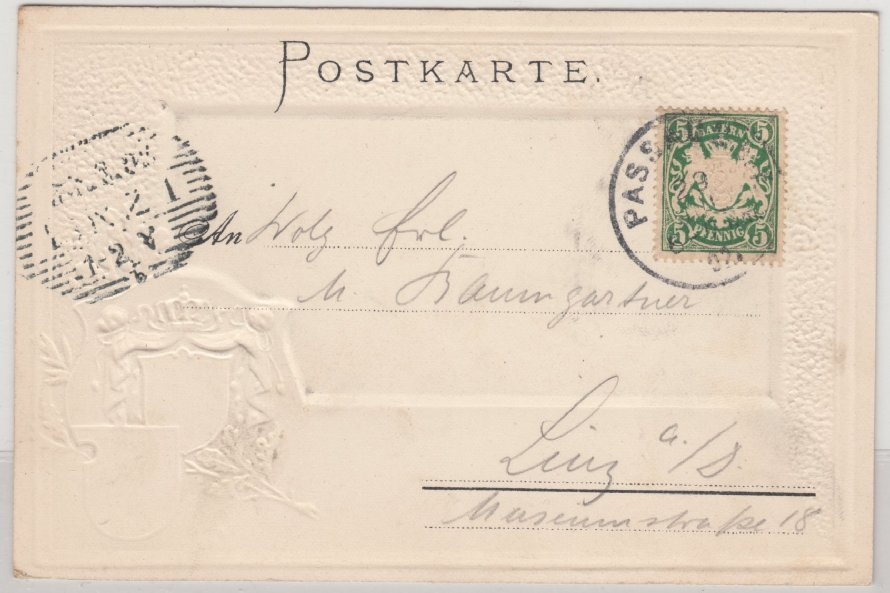 POSTKARTE.
5 BAYERN 5
PASS
5 PFENNIG 5
LINZ 1
An Wolg Frl.
M. Baumgartner
Linz a./D.
Museumstraße 18